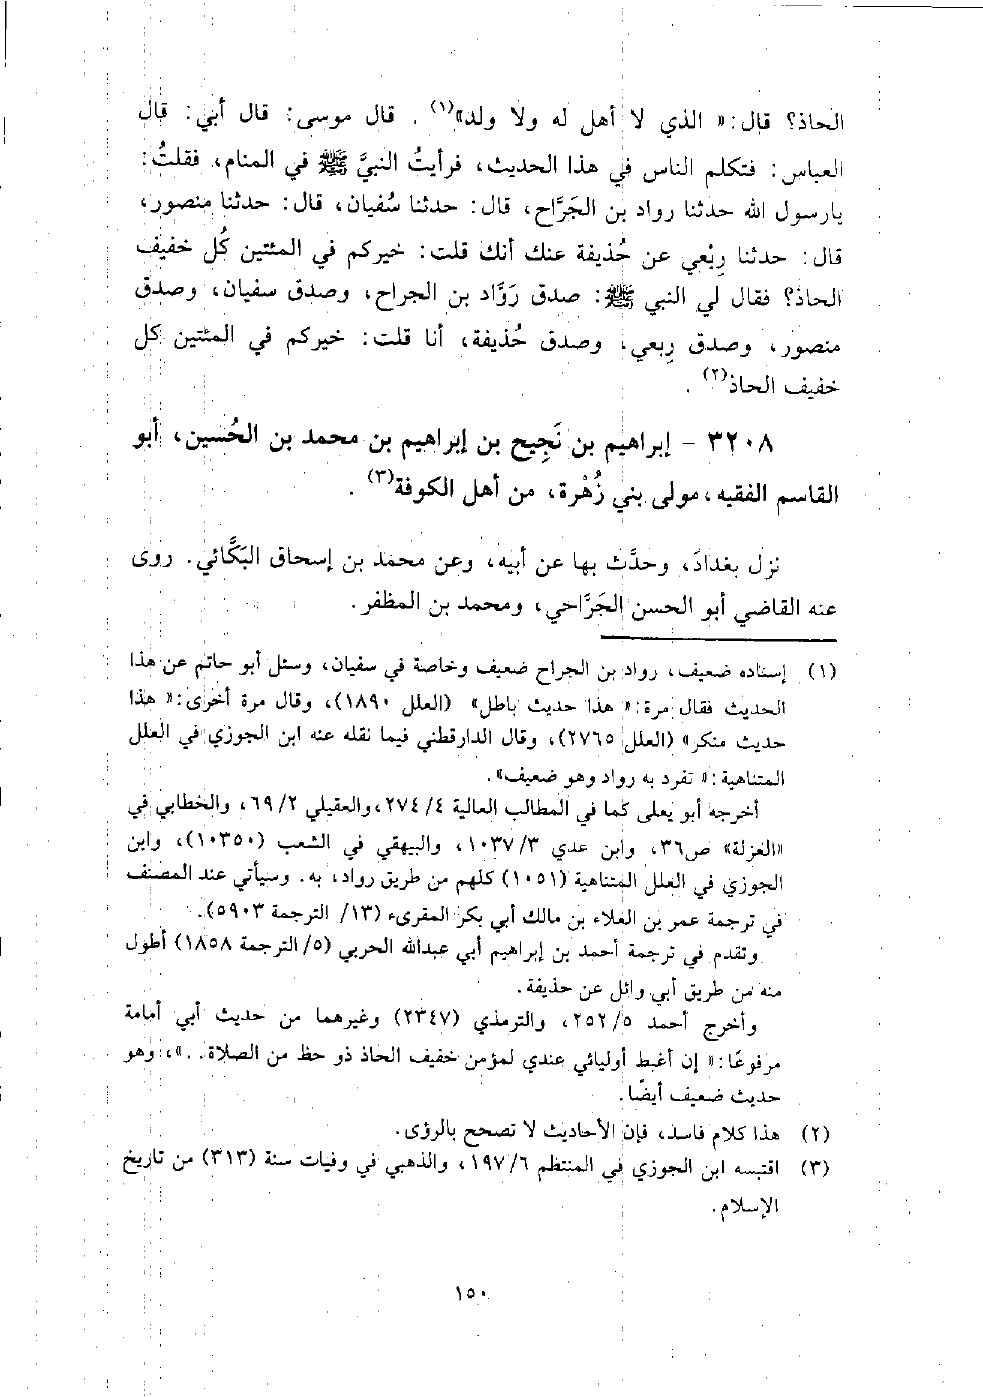 الحاذ؟ قال: « الذي لا أهل له ولا ولد»(١) . قال موسى: قال أبي: قال
العباس: فتكلم الناس في هذا الحديث، فرأيتُ النبيَّ ﷺ في المنام، فقلتُ:
يارسول الله حدثنا رواد بن الجَرَّاح، قال: حدثنا سُفيان، قال: حدثنا منصور،
قال: حدثنا رِبْعي عن حُذيفة عنك أنك قلت: خيركم في المئتين كُل خفيف
الحاذ؟ فقال لي النبي ﷺ: صدق رَوَّاد بن الجراح، وصدق سفيان، وصدق
منصور، وصدق رِبعي، وصدق حُذيفة، أنا قلت: خيركم في المئتين كل
خفيف الحاذ(٢) .
٣٢٠٨ - إبراهيم بن نَجِيح بن إبراهيم بن محمد بن الحُسين، أبو
القاسم الفقيه، مولى بني زُهْرة، من أهل الكوفة(٣) .
نزل بغدادَ، وحدَّث بها عن أبيه، وعن محمد بن إسحاق البَكَّائي. روى
عنه القاضي أبو الحسن الجَرَّاحي، ومحمد بن المظفر.
(١) إسناده ضعيف، رواد بن الجراح ضعيف وخاصة في سفيان، وسئل أبو حاتم عن هذا
الحديث فقال مرة: « هذا حديث باطل» (العلل ١٨٩٠)، وقال مرة أخرى: « هذا
حديث منكر» (العلل ٢٧٦٥)، وقال الدارقطني فيما نقله عنه ابن الجوزي في العلل
المتناهية: « تفرد به رواد وهو ضعيف».
أخرجه أبو يعلى كما في المطالب العالية ٤/ ٢٧٤، والعقيلي ٢/ ٦٩، والخطابي في
«العزلة» ص٣٦، وابن عدي ٣/ ١٠٣٧، والبيهقي في الشعب (١٠٣٥٠)، وابن
الجوزي في العلل المتناهية (١٠٥١) كلهم من طريق رواد، به. وسيأتي عند المصنف
في ترجمة عمر بن العلاء بن مالك أبي بكر المقرىء (١٣/ الترجمة ٥٩٠٣).
وتقدم في ترجمة أحمد بن إبراهيم أبي عبدالله الحربي (٥/ الترجمة ١٨٥٨) أطول
منه من طريق أبي وائل عن حذيفة.
وأخرج أحمد ٥/ ٢٥٢، والترمذي (٢٣٤٧) وغيرهما من حديث أبي أمامة
مرفوعًا: « إن أغبط أوليائي عندي لمؤمن خفيف الحاذ ذو حظ من الصلاة. .»، وهو
حديث ضعيف أيضًا.
(٢) هذا كلام فاسد، فإن الأحاديث لا تصحح بالرؤى.
(٣) اقتبسه ابن الجوزي في المنتظم ٦/ ١٩٧، والذهبي في وفيات سنة (٣١٣) من تاريخ
الإسلام.
١٥٠